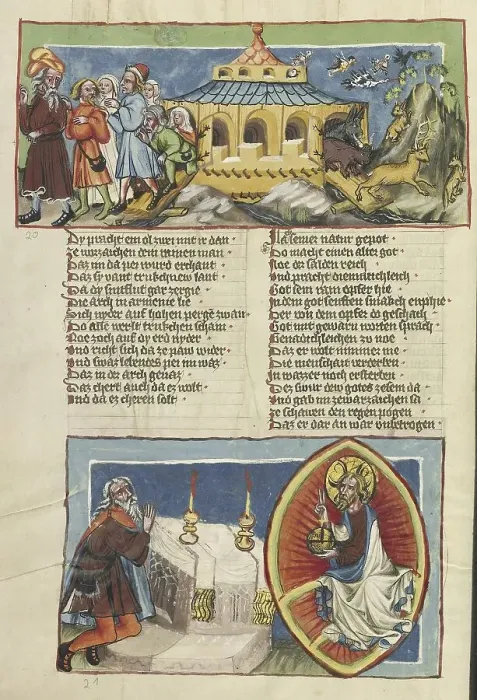 20
Dy pracht em olzwei mit ir dan
Ze worzaichen dem rainen man
Daz im da pei wurd erchant
Daz sy vant trukchnew lant
Da dy sintflut gar zergie
Die arch in armenie lie
Sich nyder auf hohen perge zwan
Do alle werlt trukchen schain
Noe zoch auf dy erd nyder
Und richt sich da ze paw wider
Und swaz lebendes pei im waz
Daz in der arch genaz
Daz chert auch da ez wolt
Und da ez cheren solt
Als seiner natur gepot
Do macht einen alter got
Noe der salden reich
Und pracht diemutichleich
Got sein rain opfer hie
In dem got senften smakch enphie
Der von dem opfer do geschach
Got mit gewarn worten sprach
Genadichleichen zu noe
Daz er wolt nimmer me
Die menschait verderben
In wazzer noch ersterben
Dez swur dew gotes zesem da
Und gab im ze warzaichen sa
Ze schawen den regen pogen
Daz er dar an war unbetrogen
21